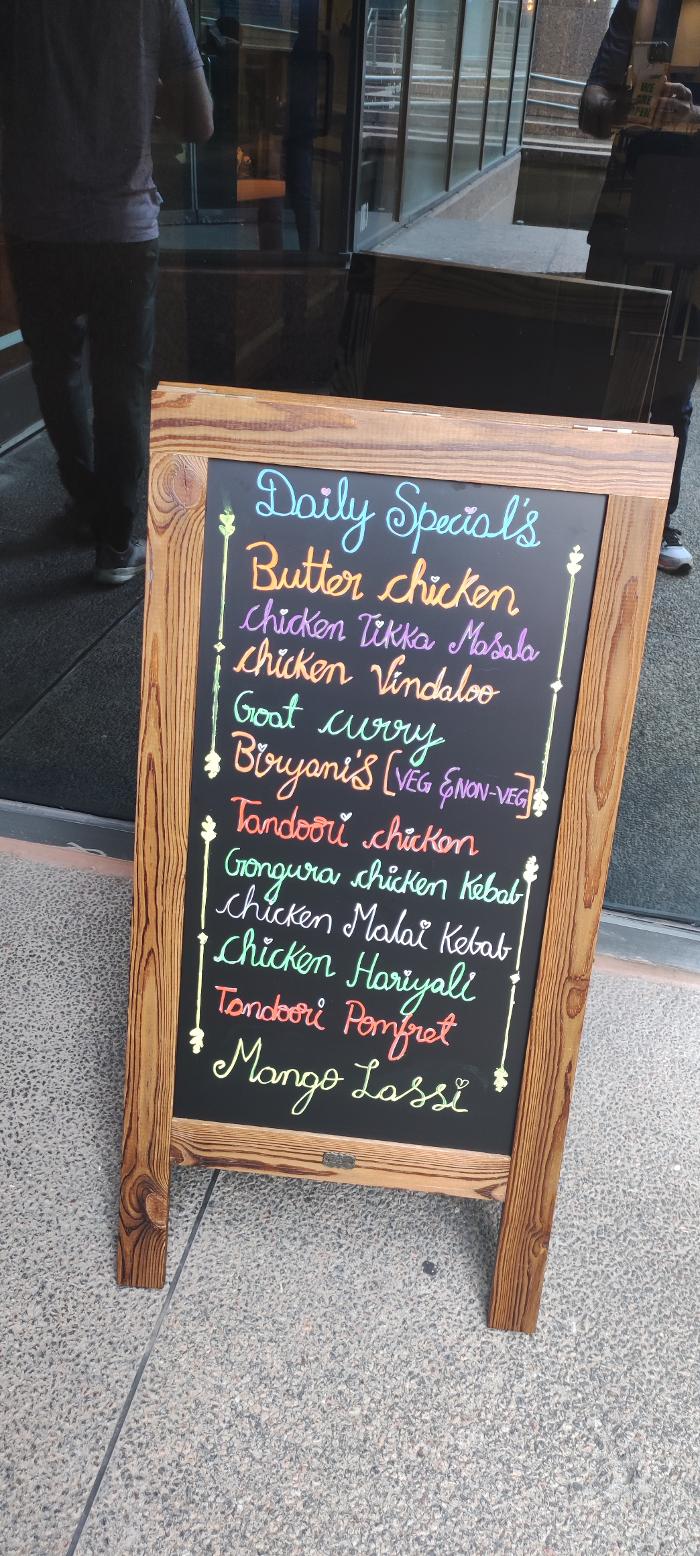 Daily Special's
Butter chicken
chicken Tikka Masala
chicken Vindaloo
Goat curry
Biryani's [VEG & NON-VEG]
Tandoori chicken
Gongura chicken Kebab
chicken Malai Kebab
chicken Hariyali
Tandoori Pomfret
Mango Lassi